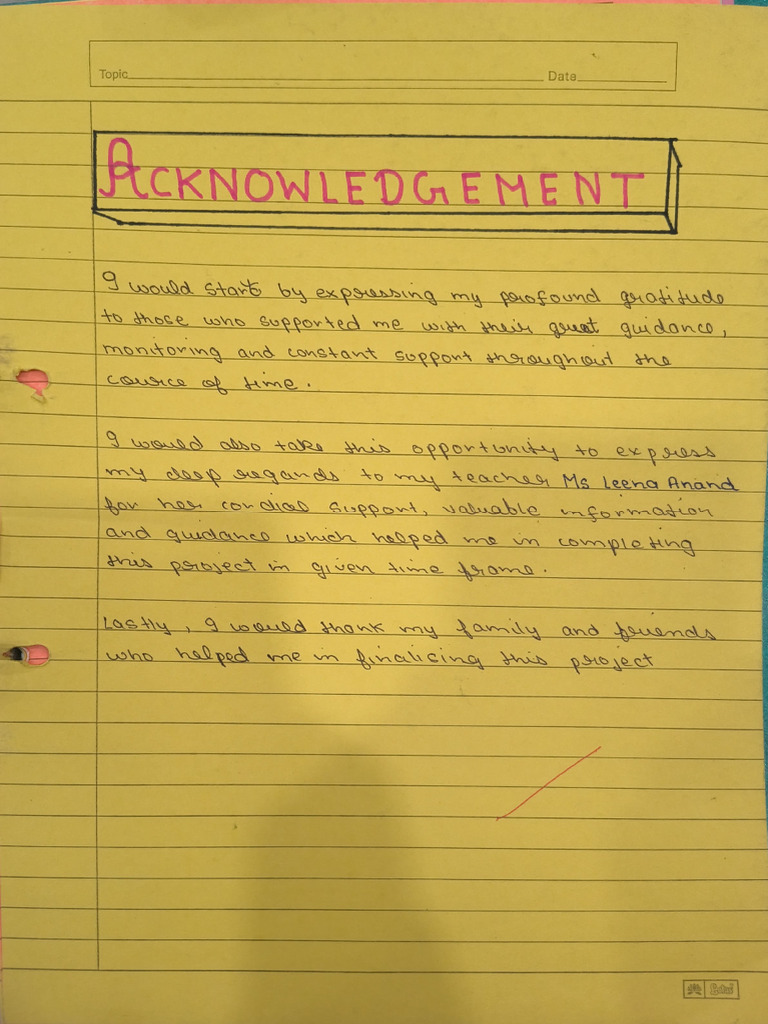 Topic Date
ACKNOWLEDGEMENT
I would start by expressing my profound gratitude
to those who supported me with their great guidance,
monitoring and constant support throughout the
cource of time.
I would also take this opportunity to express
my deep regands to my teacher Ms Leena Anand
for her cordial support, valuable information
and guidance which helped me in completing
this project in given time frame.
Lastly, I would thank my family and friends
who helped me in finalicing this project